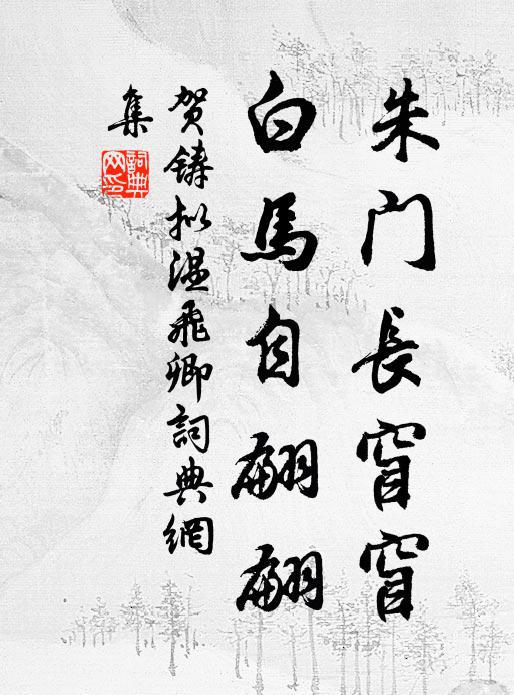 朱门長窅窅
白馬自翩翩
贺铸拟温飛卿詞典網
集
詞典网印